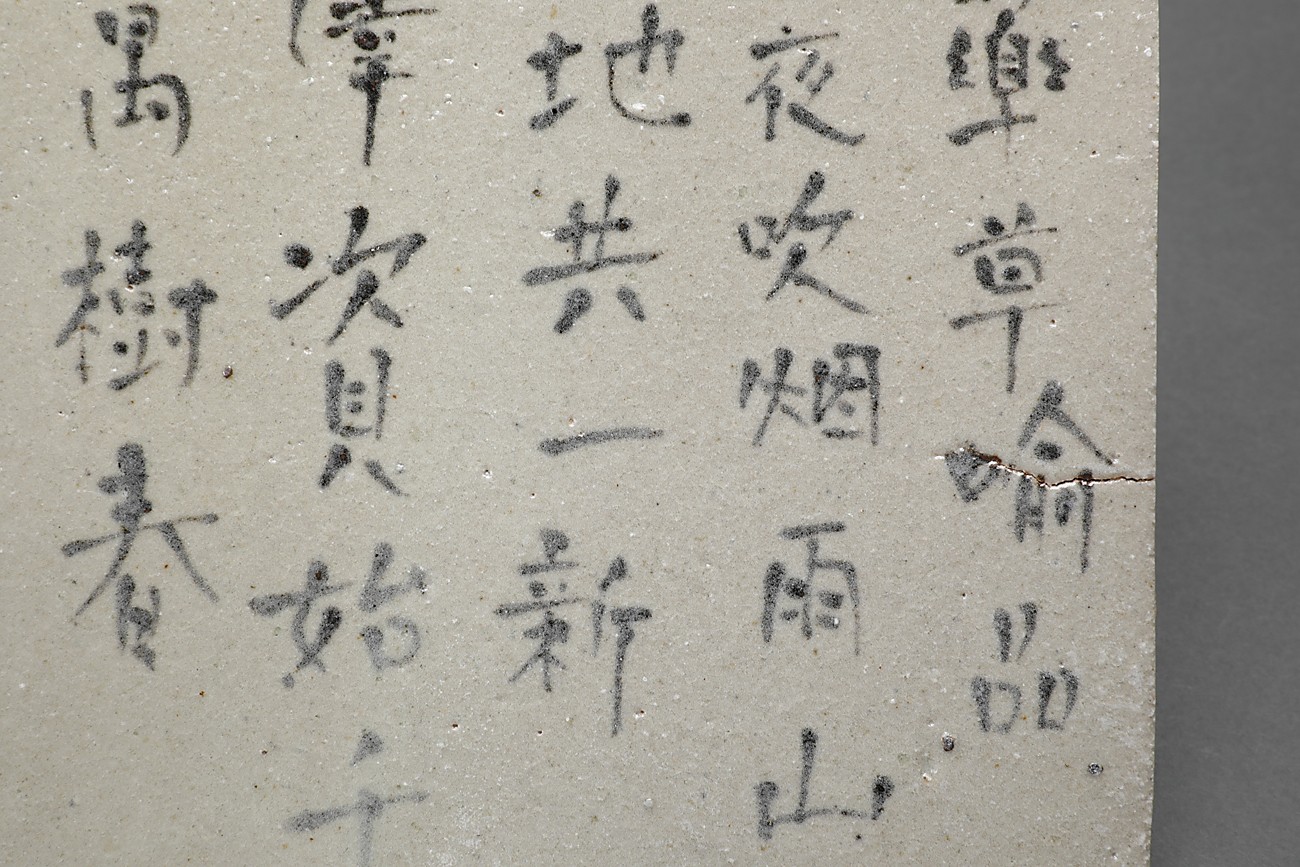 藥草喻品
夜吹烟雨山
地共一新
澤資始千
萬樹春